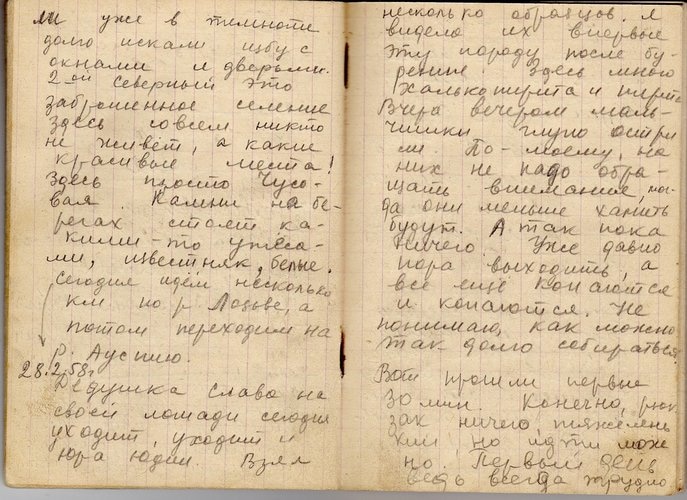 ли уже в темноте
долго искали избу с
окнами и дверьми.
2-ой Северный это
заброшенное селение
здесь совсем никто
не живёт, а какие
красивые места!
Здесь просто Чусо-
вая. Камни на бе-
регах стоят ка-
кими-то утёса-
ми, известняк, белые.
Сегодня идём несколько
км по р Лозьве, а
потом переходим на
р. Ауспию.
28.2.58г
Дедушка Слава на
своей лошади сегодня
уходит, уходит и
Юра Юдин. Взял
несколько образцов. Я
видела их впервые
эту породу после бу-
рения. Здесь много
халькопирита и пирита
Вчера вечером маль-
чишки глупо остри
ли. По-моему, на
них не надо обра-
щать внимание, мо-
да они меньше хамить
будут. А так пока
ничего. Уже давно
пора выходить, а
все ещё копаются
и копаются. Не
понимаю, как можно
так долго собираться.
Вот прошли первые
30 мин. Конечно, рюк
зак ничего, тяжелень
кий но идти мож
но. Первый день
ведь всегда трудно